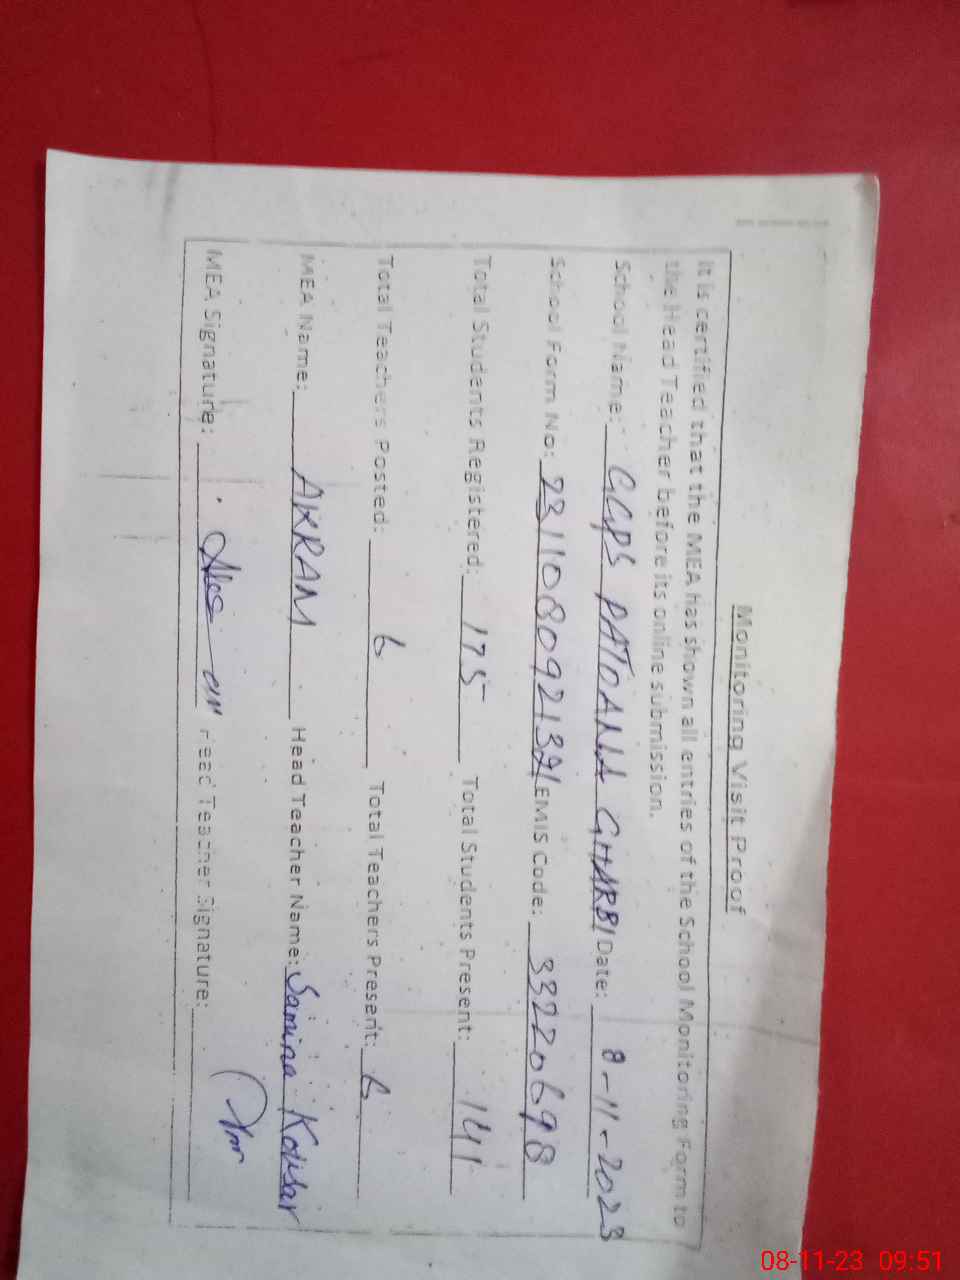 Monitoring Visit Proof
It is certified that the MEA has shown all entries of the School Monitoring Form to
the Head Teacher before its online submission.
School Name: GGPS PATOANA GHARBI Date: 8-11-2023
School Form No: EMIS Code: 33220698
Total Students Registered: 175 Total Students Present: 141
Total Teachers Posted: 6 Total Teachers Present: 6
MEA Name: AKRAM Head Teacher Name: Samina Kousar
MEA Signature: Head Teacher Signature:
08-11-23 09:51